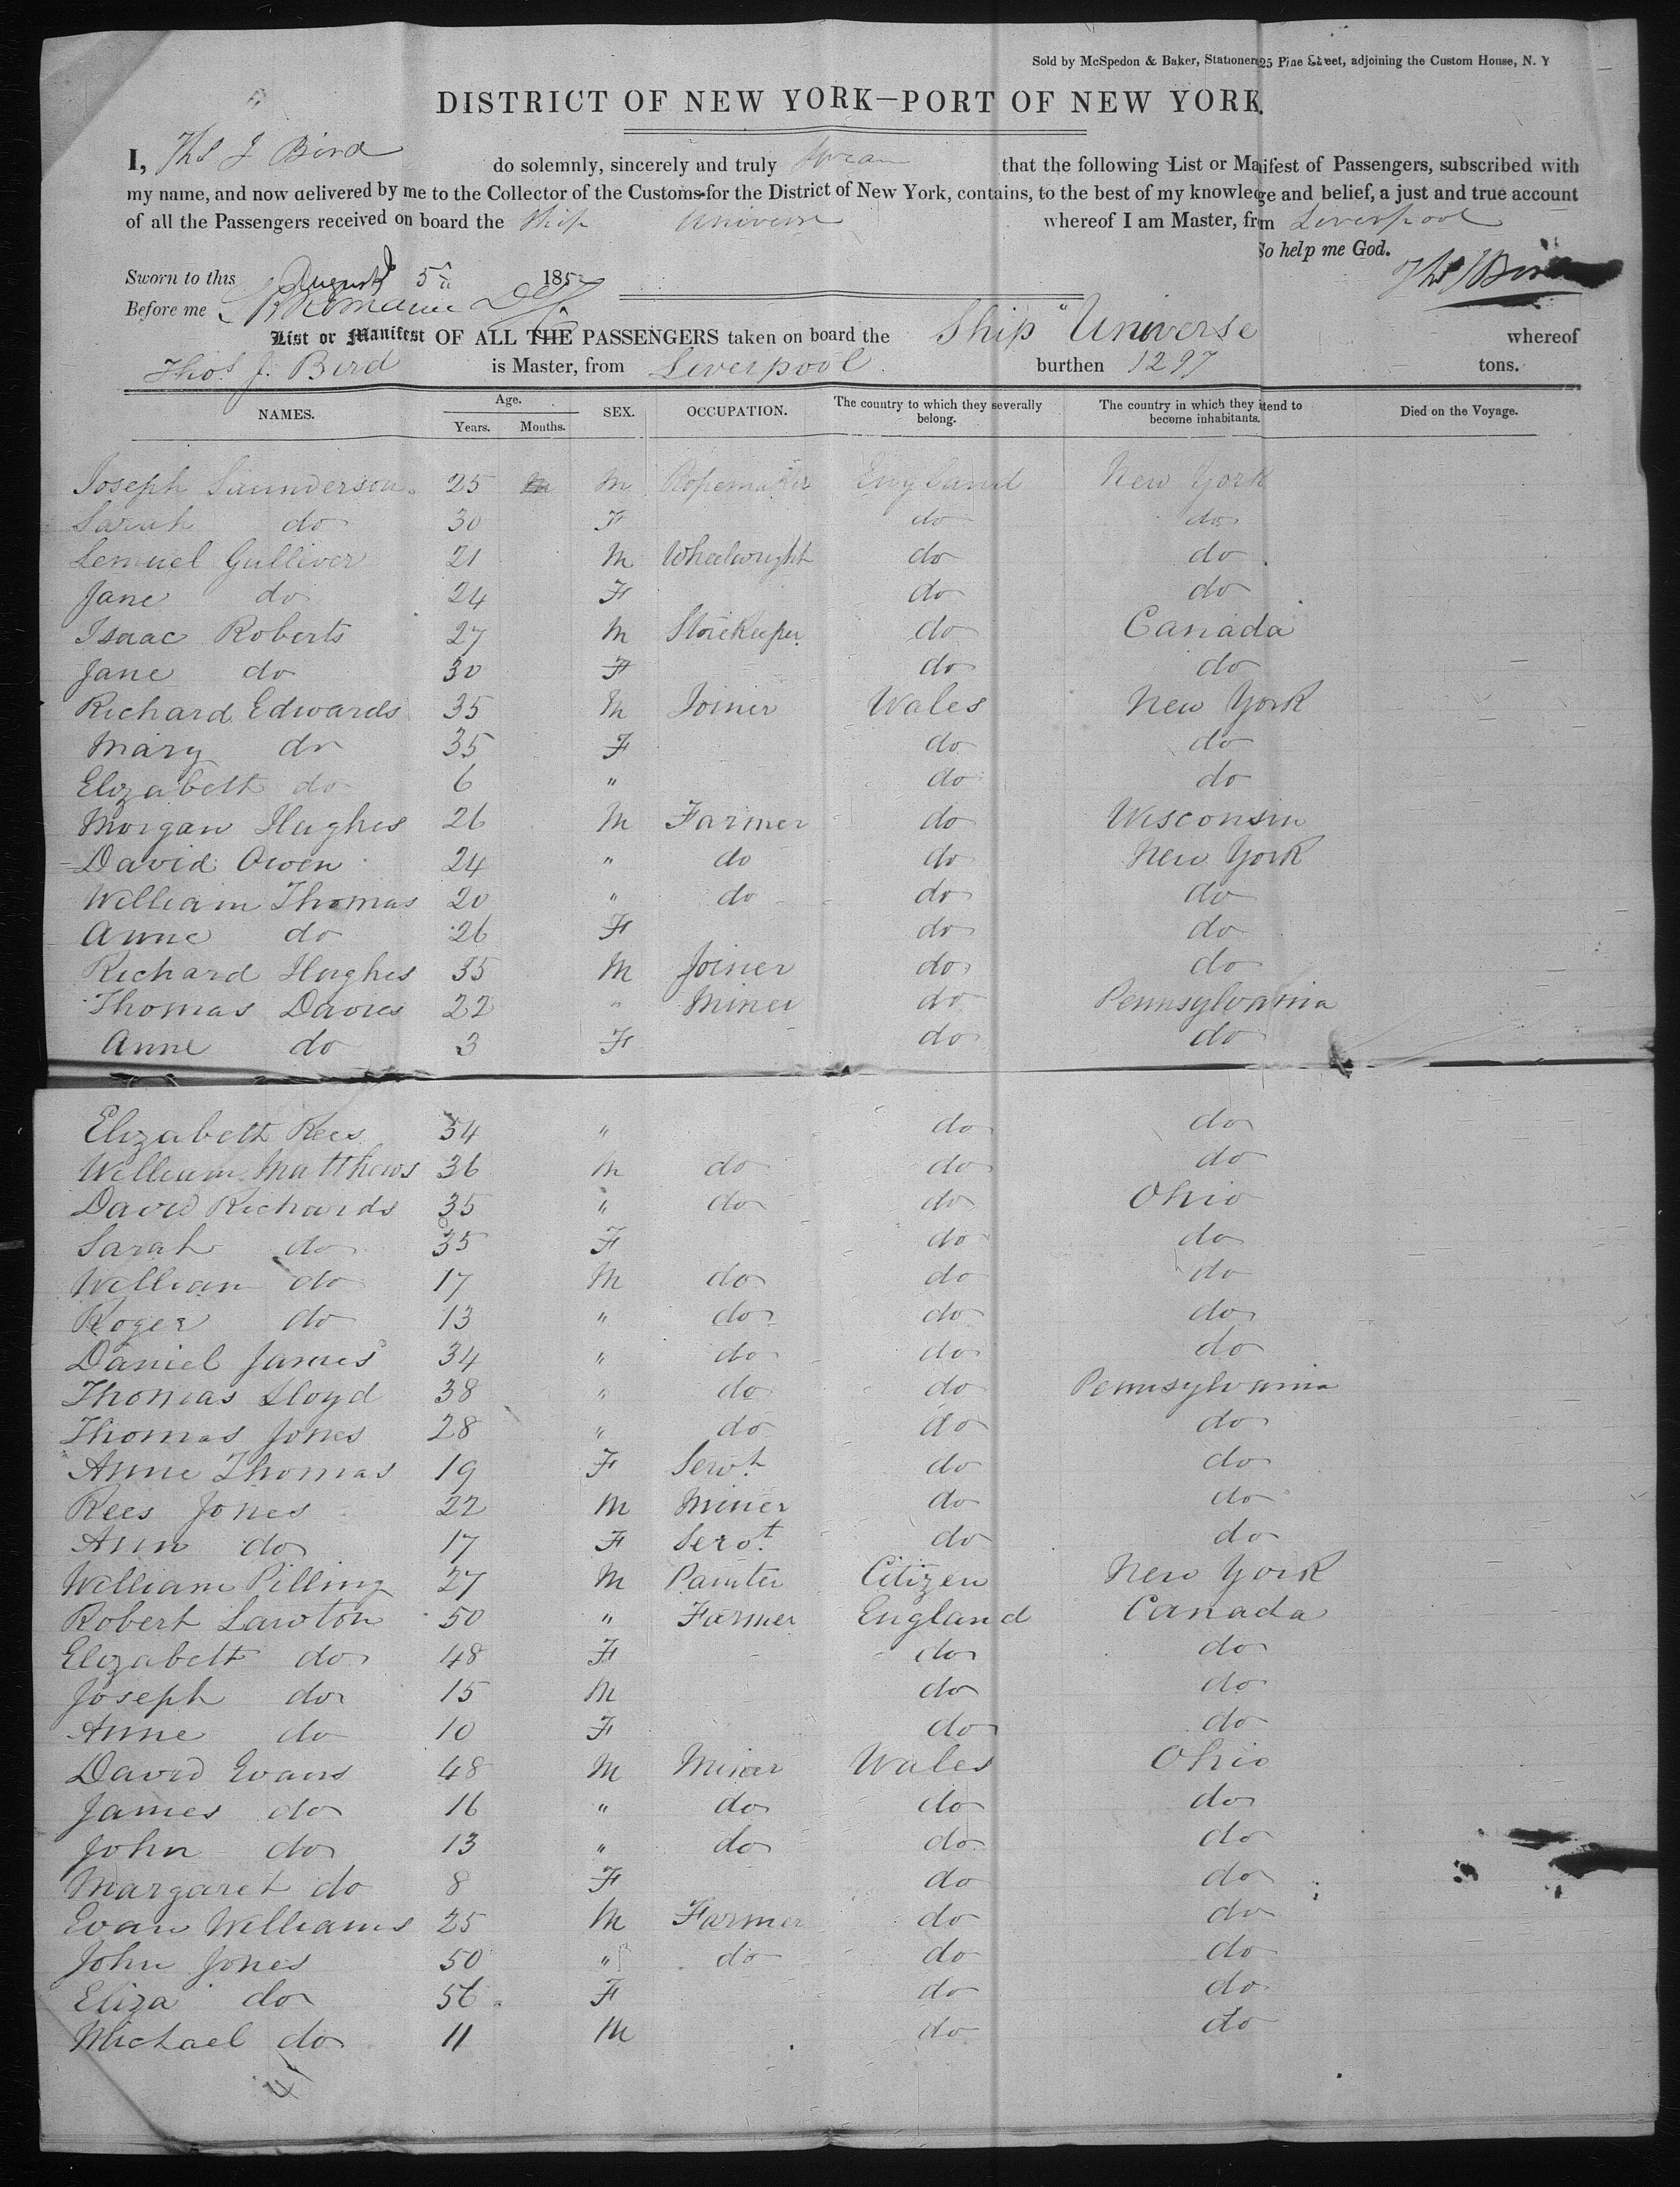 Sold by McSpedon & Baker, Stationers 25 Pine Street, adjoining the Custom House, N. Y
DISTRICT OF NEW YORK—PORT OF NEW YORK.
I, Ths J Bird do solemnly, sincerely and truly swear that the following List or Manifest of Passengers, subscribed with
my name, and now delivered by me to the Collector of the Customs for the District of New York, contains, to the best of my knowledge and belief, a just and true account
of all the Passengers received on board the Ship Universe whereof I am Master, from Liverpool
So help me God.
Sworn to this August 5th 1852 Ths J Bird
Before me
List or Manifest OF ALL THE PASSENGERS taken on board the Ship "Universe whereof
Thos. J. Bird is Master, from Liverpool burthen 1297 tons.
NAMES. Age. Years. Months. SEX. OCCUPATION. The country to which they severally belong. The country in which they intend to become inhabitants. Died on the Voyage.
Joseph Saunderson 25 M Ropemaker England New York
Sarah do 30 F do do
Lemuel Gulliver 21 M Wheelwright do do
Jane do 24 F do do
Isaac Roberts 27 M Storekeeper do Canada
Jane do 30 F do do
Richard Edwards 35 M Joiner Wales New York
Mary do 35 F do do
Elizabeth do 6 " do do
Morgan Hughes 26 M Farmer do Wisconsin
David Owen 24 " do do New York
William Thomas 20 " do do do
Anne do 26 F do do
Richard Hughes 35 M Joiner do do
Thomas Davies 22 " Miner do Pennsylvania
Anne do 3 F do do
Elizabeth Rees 34 " do do
William Matthews 36 M do do do
David Richards 35 " do do Ohio
Sarah do 35 F do do
William do 17 M do do do
Roger do 13 " do do do
Daniel James 34 " do do do
Thomas Lloyd 38 " do do Pennsylvania
Thomas Jones 28 " do do do
Anne Thomas 19 F Servt do do
Rees Jones 22 M Miner do do
Ann do 17 F Servt do do
William Pilling 27 M Painter Citizen New York
Robert Lawton 50 " Farmer England Canada
Elizabeth do 48 F do do
Joseph do 15 M do do
Anne do 10 F do do
David Evans 48 M Miner Wales Ohio
James do 16 " do do do
John do 13 " do do do
Margaret do 8 F do do
Evan Williams 25 M Farmer do do
John Jones 50 " do do do
Eliza do 56 F do do
Michael do 11 M do do